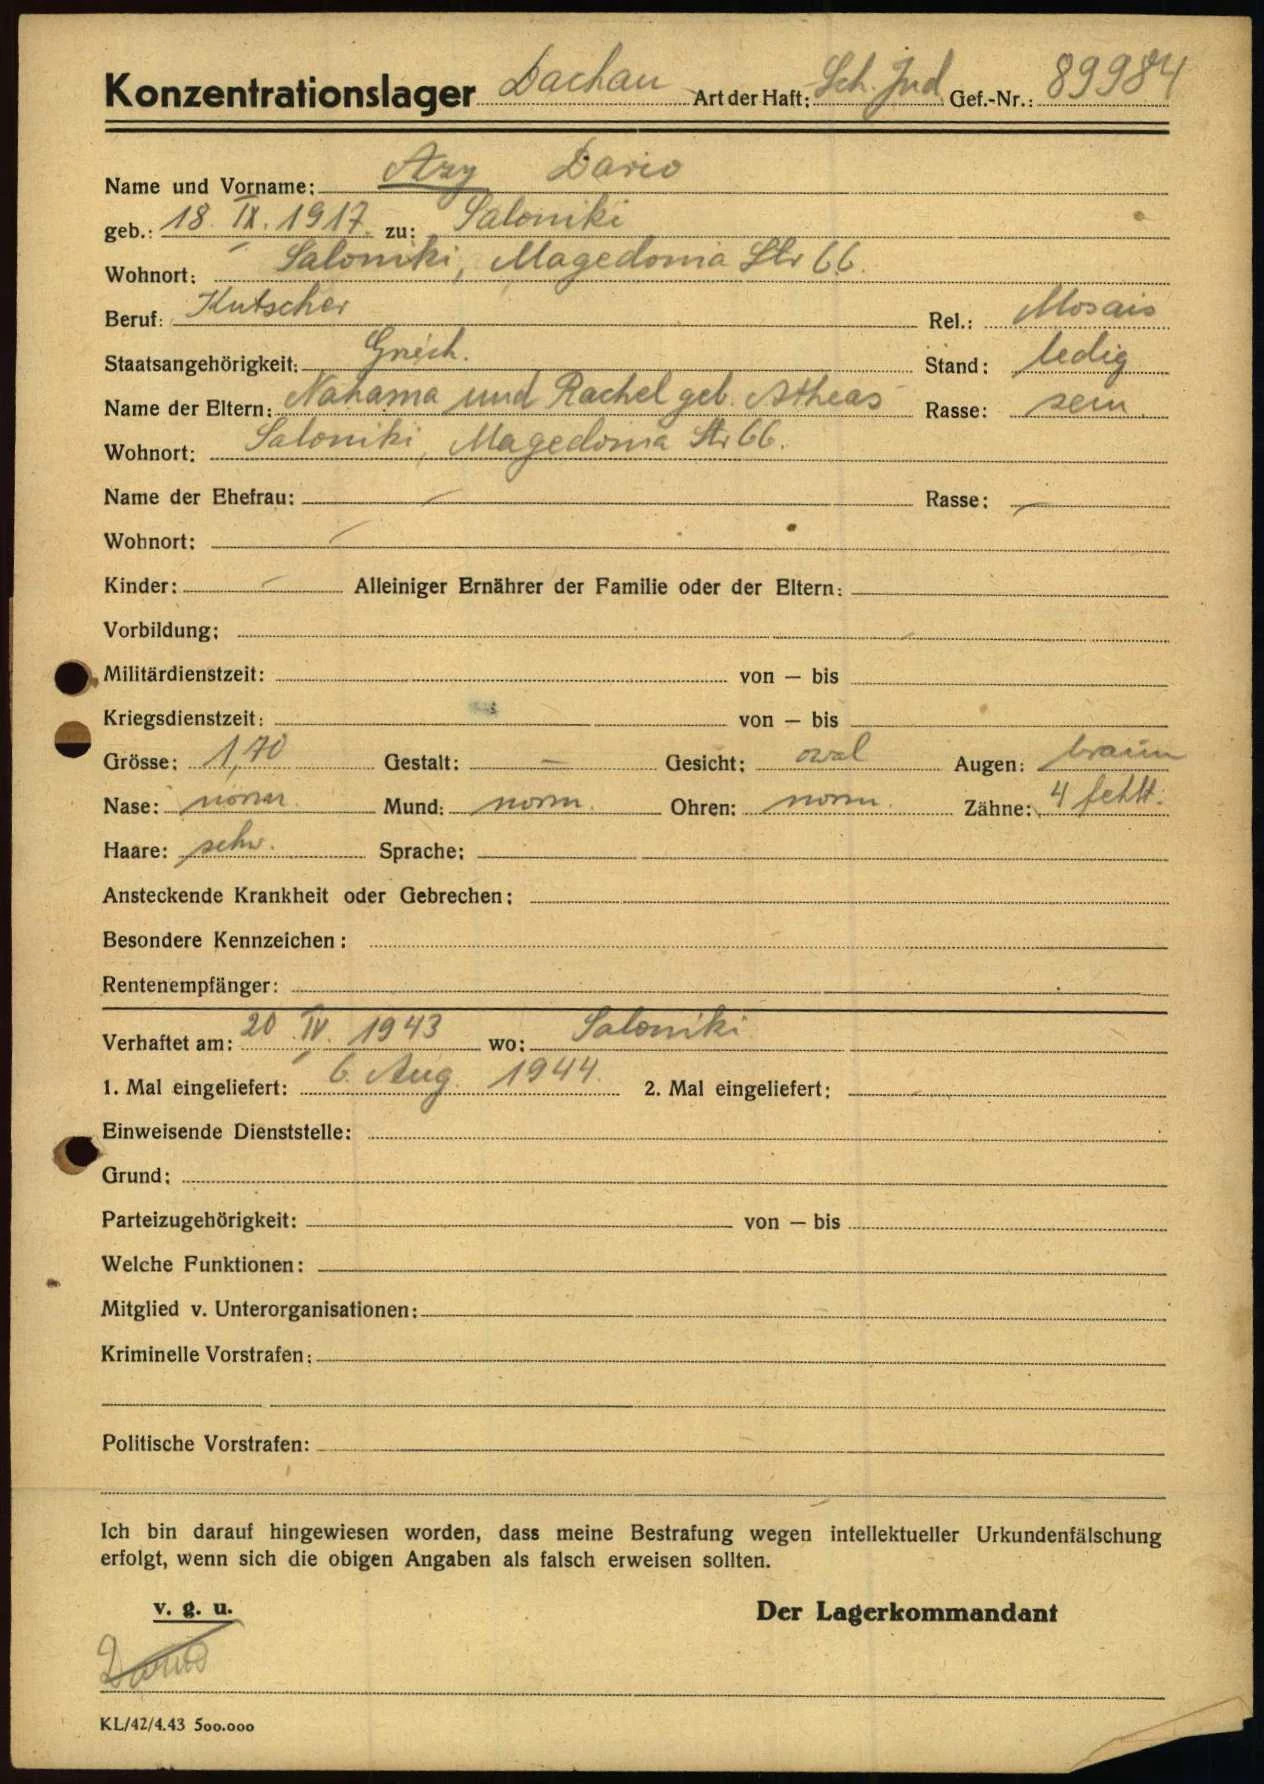 Konzentrationslager Dachau Art der Haft: Sch. Jud Gef.-Nr.: 89984
Name und Vorname: Azy Dario
geb.: 18. IX. 1917. zu: Saloniki
Wohnort: Saloniki, Magedonia Str 66.
Beruf: Kutscher Rel.: Mosais
Staatsangehörigkeit: Griech. Stand: ledig
Name der Eltern: Nahama und Rachel geb. Atheas Rasse: sem.
Wohnort: Saloniki, Magedonia Str 66.
Name der Ehefrau: – Rasse: –
Wohnort: –
Kinder: – Alleiniger Ernährer der Familie oder der Eltern:
Vorbildung:
Militärdienstzeit: von — bis
Kriegsdienstzeit: von — bis
Grösse: 1,70 Gestalt: – Gesicht: oval Augen: braun
Nase: norm. Mund: norm. Ohren: norm. Zähne: 4 fehlt.
Haare: schw. Sprache:
Ansteckende Krankheit oder Gebrechen:
Besondere Kennzeichen:
Rentenempfänger:
Verhaftet am: 20. IV. 1943 wo: Saloniki
1. Mal eingeliefert: 6. Aug. 1944. 2. Mal eingeliefert:
Einweisende Dienststelle:
Grund:
Parteizugehörigkeit: von — bis
Welche Funktionen:
Mitglied v. Unterorganisationen:
Kriminelle Vorstrafen:
Politische Vorstrafen:
Ich bin darauf hingewiesen worden, dass meine Bestrafung wegen intellektueller Urkundenfälschung
erfolgt, wenn sich die obigen Angaben als falsch erweisen sollten.
v. g. u. Der Lagerkommandant
KL/42/4.43 500.000